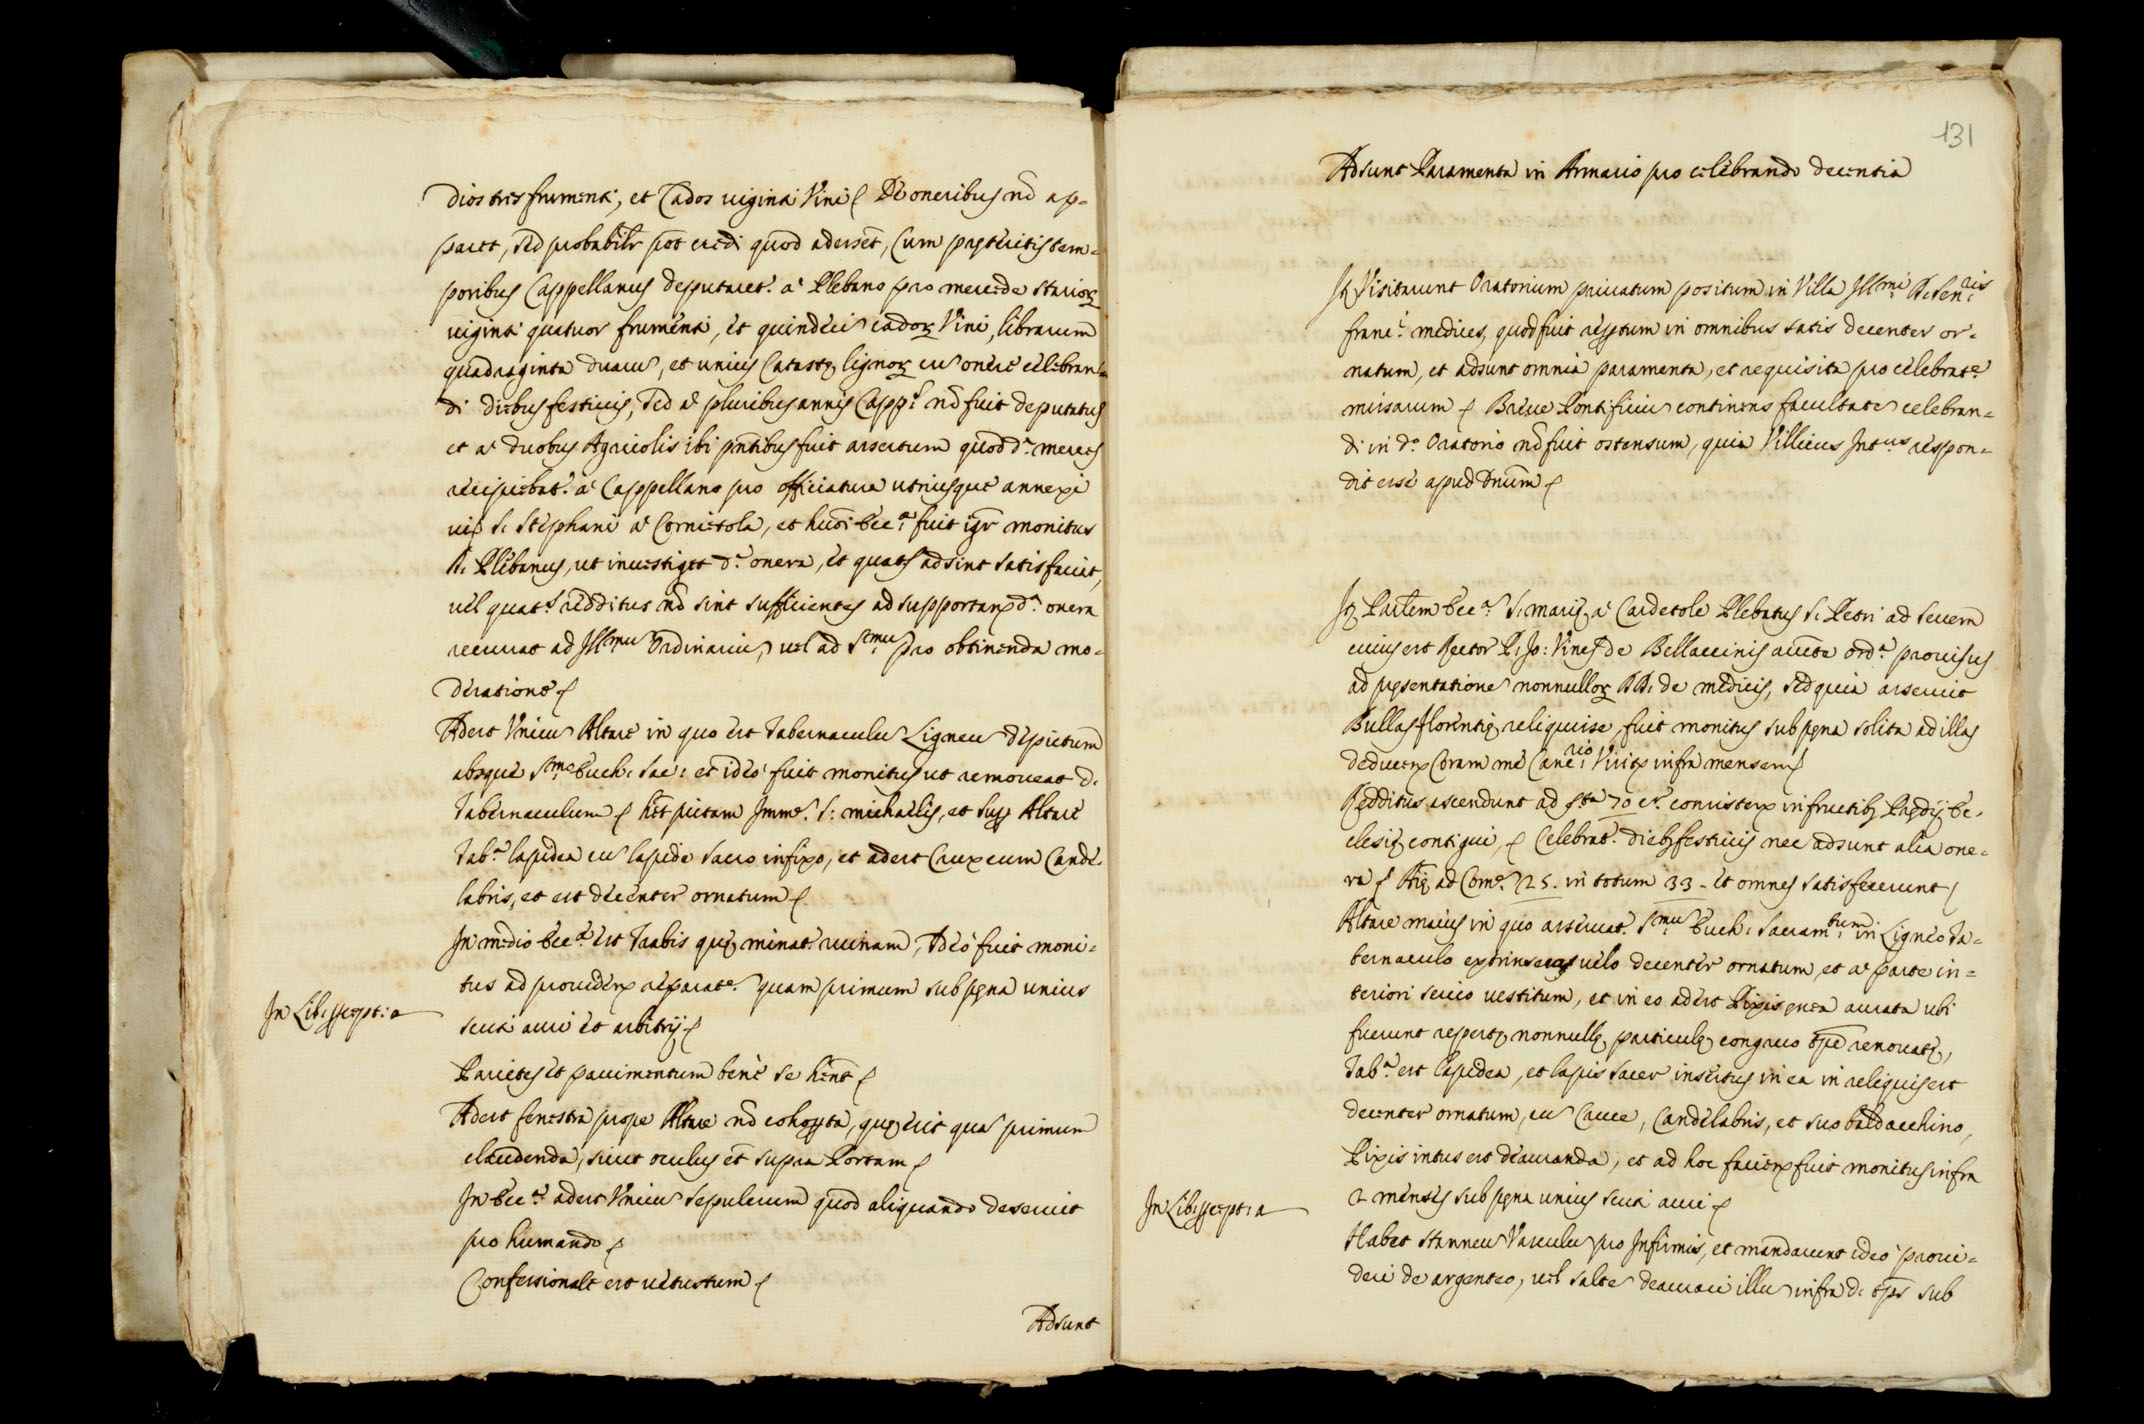 dios tres frumenti, et Cados viginti Vini De oneribus nō ap=
paret, sed probabilr pōt credi quod adessēt, cum preteritis tem=
poribus Cappellanus deputaret. a Plebano pro mercede starior
viginti quatuor frumenti, et quindeci cador Vini, librarum
quadraginta duaru, et unius Catastę lignor cu onere celebran=
di diebus festivis, sed a pluribus annis Capp. nō fuit deputatus
et a duobus Agricolis ibi pntibus fuit assertum quod d.ª merces
recipiebat. a Cappellano pro officiatura utriusque annexi
S. Stephani a Cornetola, et huōi Ecc.ª fuit igr monitus
R. Plebanus, ut investiget d.ª onera, et quats adsint satisfaciat,
vel quats redditus nō sint sufficientes ad supportand d.ª onera
recurrat ad Ill.mu Ordinariu, vel ad S.mu pro obtinenda mo=
deratione
Adest Unicu Altare in quo est Tabernaculu Ligneu depictum
absque S.mo Euch. Sac: et ideo fuit monitus ut removeat d.
Tabernaculum hēt pictam Imm.e S: Michaelis, et sup Altare
Tab.ª lapidea cu lapide sacro infixo, et adest Crux cum Cande=
labris, et est decenter ornatum
In medio Ecc.ę est Trabis quę minat. ruinam, Ideo fuit moni=
tus ad providend reparat.e quam primum sub pęna unius
In Lib: prept: a
scuti auri et arbitrij
Parietes et pavimentum bene se hēnt
Adest fenestra prope Altare nō cohopta, quę erit qua primum
claudenda, sicut oculus et supra Portam
In Ecc.ª adest Unicu Sepulcrum quod aliquando deservit
pro humando
Confessionale est vetustum
Adsunt
131
Adsunt Paramenta in Armario pro celebrando decentia
It Visitarunt Oratorium privatum positum in Villa Ill.mi D. Sen.ris
Franc.i Medices, quod fuit reptum in omnibus satis decenter or=
natum, et adsunt omnia paramenta, et requisita pro celebrat.e
missarum Breve Pontificiu continens facultate celebran=
di in d.o Oratorio nō fuit ostensum, quia Villicus Int.us respon=
dit esse apud Dnūm
It Parlem Ecc.ª S. Marię a Cardetole Plebatus S. Petri ad Sevem
cuius est Rector R. Jo: Vincs de Bellaccinis auctte ord.ª provisus
ad pręsentatione nonnullor DD. de Medicis, sed quia asseruit
Bullas Florentię reliquisse, fuit monitus sub pęna solita ad illas
deducend Coram me Canc.rio Visit infra mensem
Redditus ascendunt ad s.ta 70 c.ª consisten in fructib Prędij Ec=
clesię contigui, Celebrat. dieb festivis nec adsunt alia one=
ra Anię ad Com.e 25. in totum 33 - et omnes satisfecerunt
Altare maius in quo asservat. S.mu Euch. Sacram.tum in Ligneo Ta=
bernaculo extrinsecus velo decenter ornatum, et a parte in=
teriori serico vestitum, et in eo adest Pixis aurata ubi
fuerunt repertę nonnullę particulę congruo tpe renovatę,
Tab.ª est lapidea, et lapis sacer insertus in ea in reliquis est
decenter ornatum, cu Cruce, Candelabris, et suo baldacchino,
Pixis intus est deauranda, et ad hoc faciend fuit monitus infra
In Lib: prept: a
2 menses sub pęna unius scuti auri
Habet stanneu Vasculu pro Infirmis, et mandarunt ideo provi=
deri de argenteo, vel salte deaurari illu infra d. tps sub